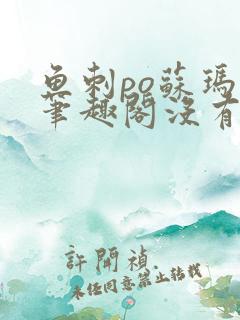 魚刺po蘇瑪
筆趣閣沒有
許開禎
未经同意禁止转载